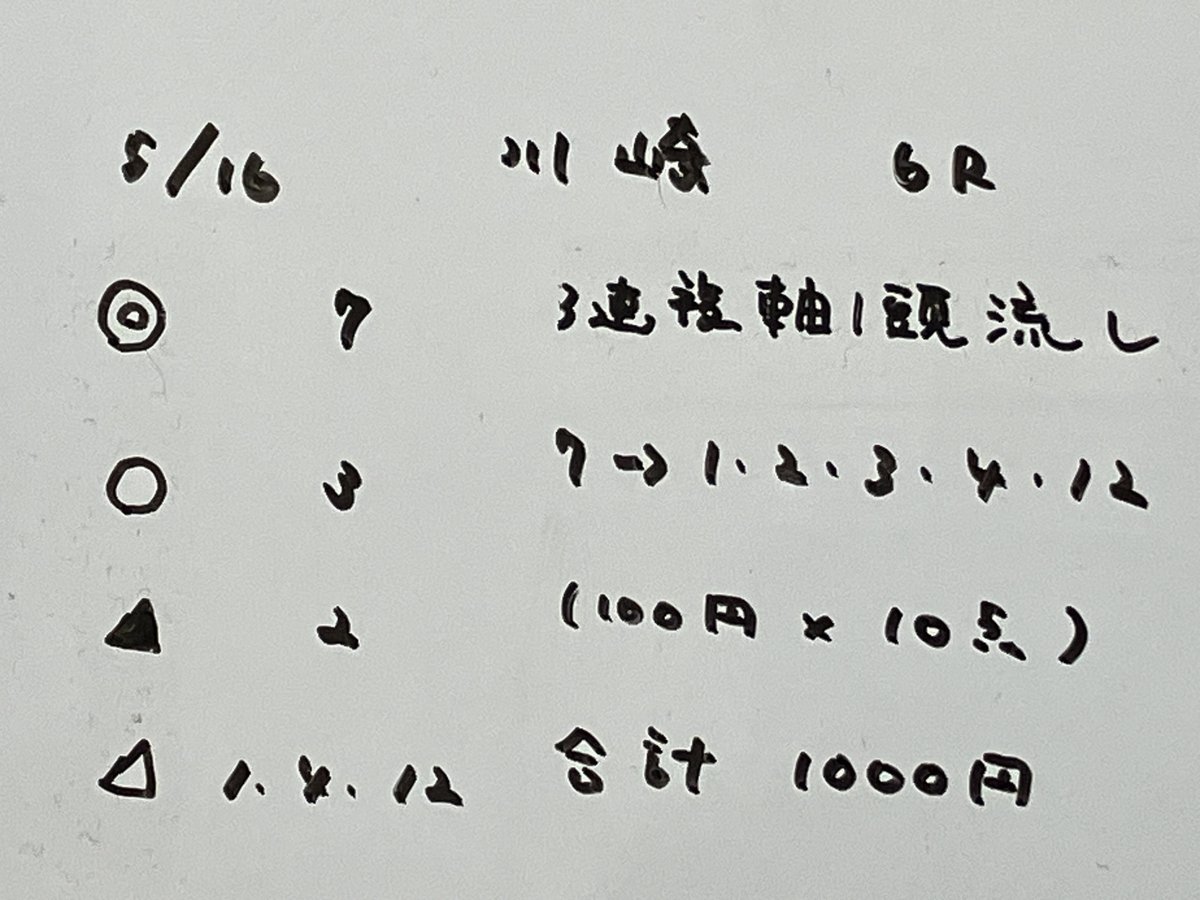 5/16 川崎 6R
◎ 7 3連複軸1頭流し
○ 3 7→1.2.3.4.12
▲ 2 (100円×10点)
△ 1.4.12 合計 1000円